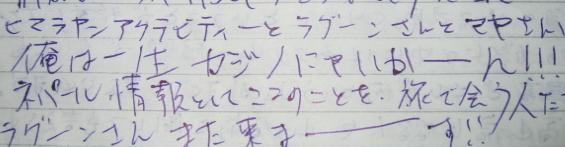 ヒマラヤンアクティビティーとラグーンさんとマヤさん
俺は一生カジノにゃいかーーん!!!
ネパール情報としてここのことを、旅で会う人た
ラグーンさんまた来まーーーす!!